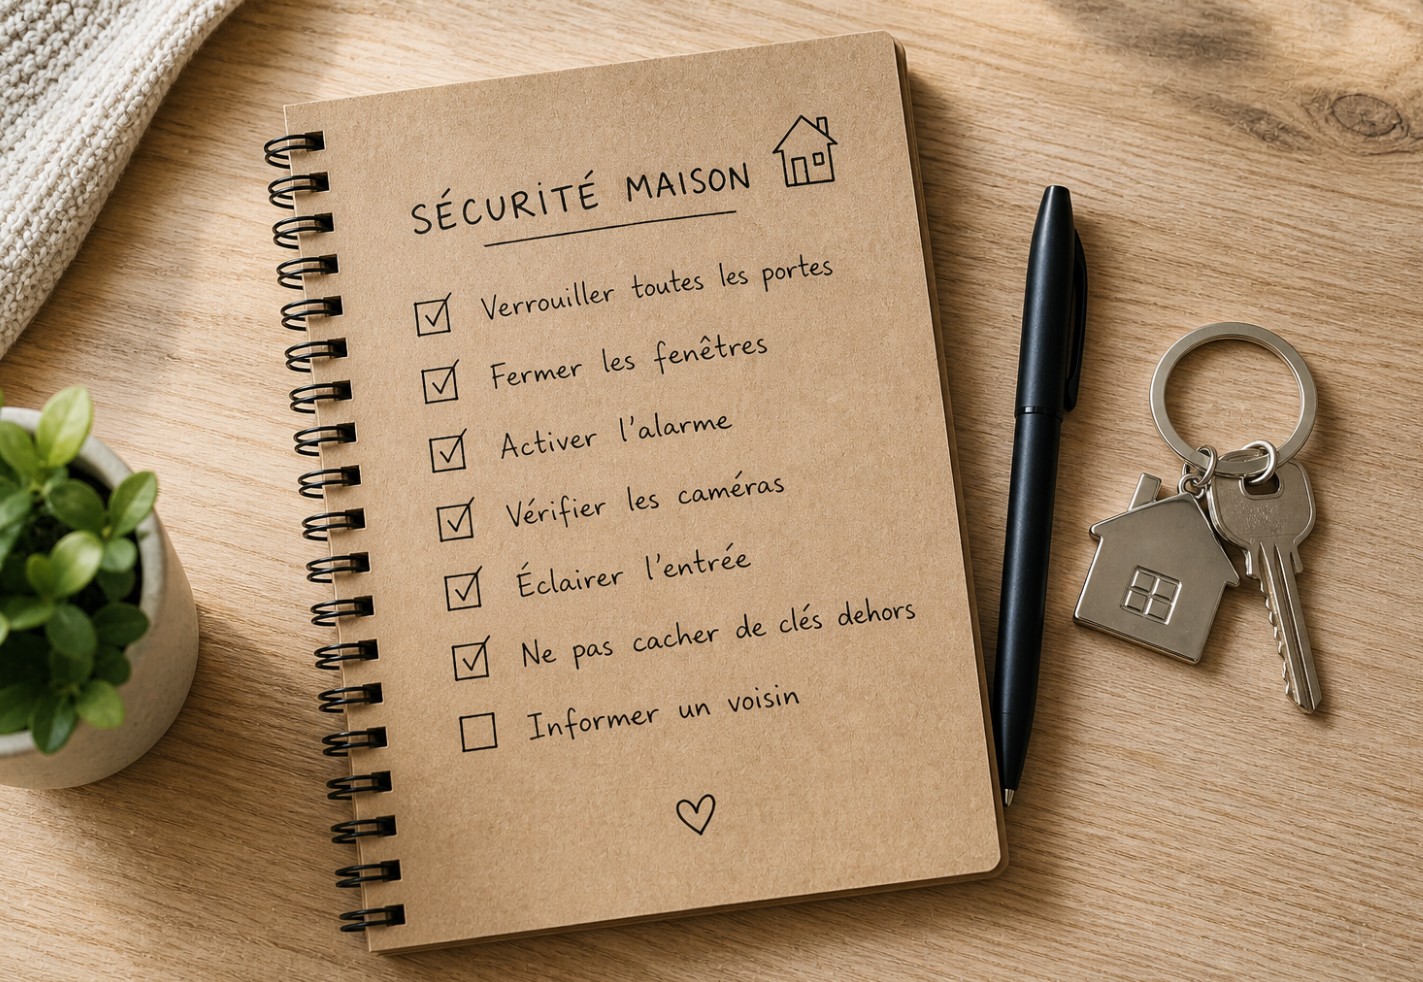 SÉCURITÉ MAISON
Verrouiller toutes les portes
Fermer les fenêtres
Activer l'alarme
Vérifier les caméras
Éclairer l'entrée
Ne pas cacher de clés dehors
Informer un voisin